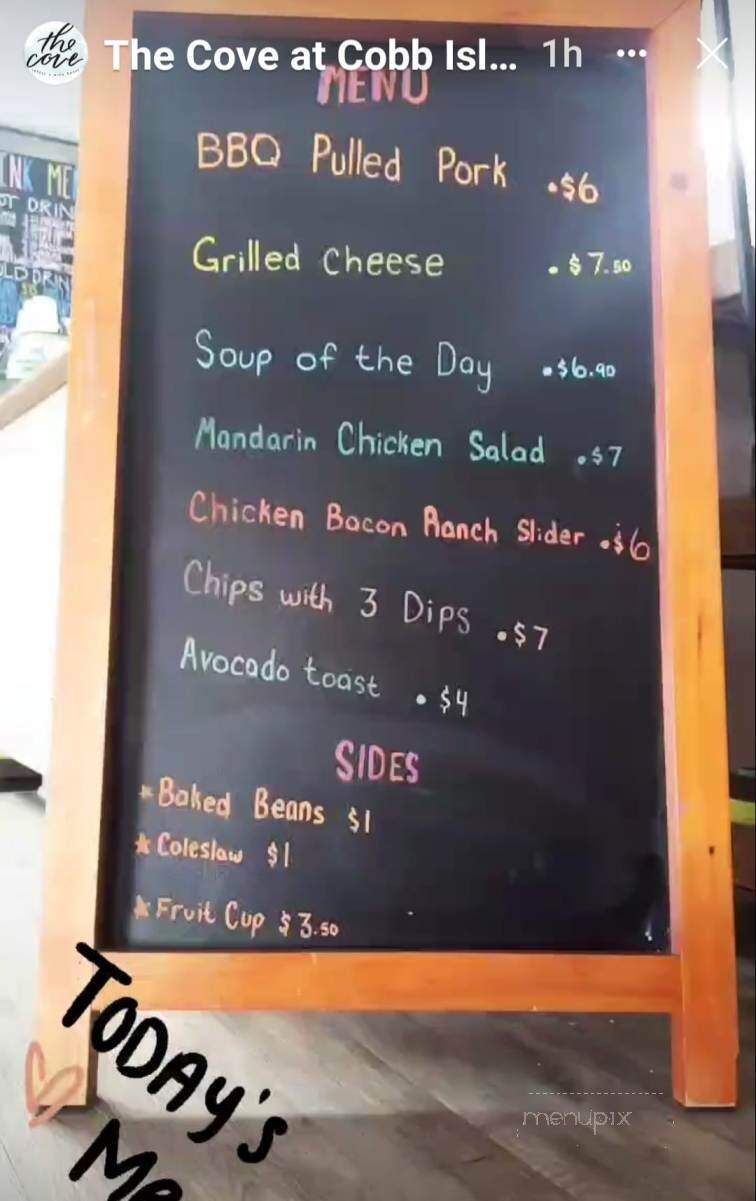 the
cove
The Cove at Cobb Isl... 1h
MENU
BBQ Pulled Pork .$6
Grilled cheese . $7.50
Soup of the Day .$6.90
Mandarin Chicken Salad .$7
Chicken Bacon Ranch Slider .$6
Chips with 3 Dips .$7
Avocado toast . $4
SIDES
* Baked Beans $1
* Coleslaw $1
* Fruit Cup $3.50
INK ME
OT DRIN
LD DRIN
TODAY'S
Me
menupix